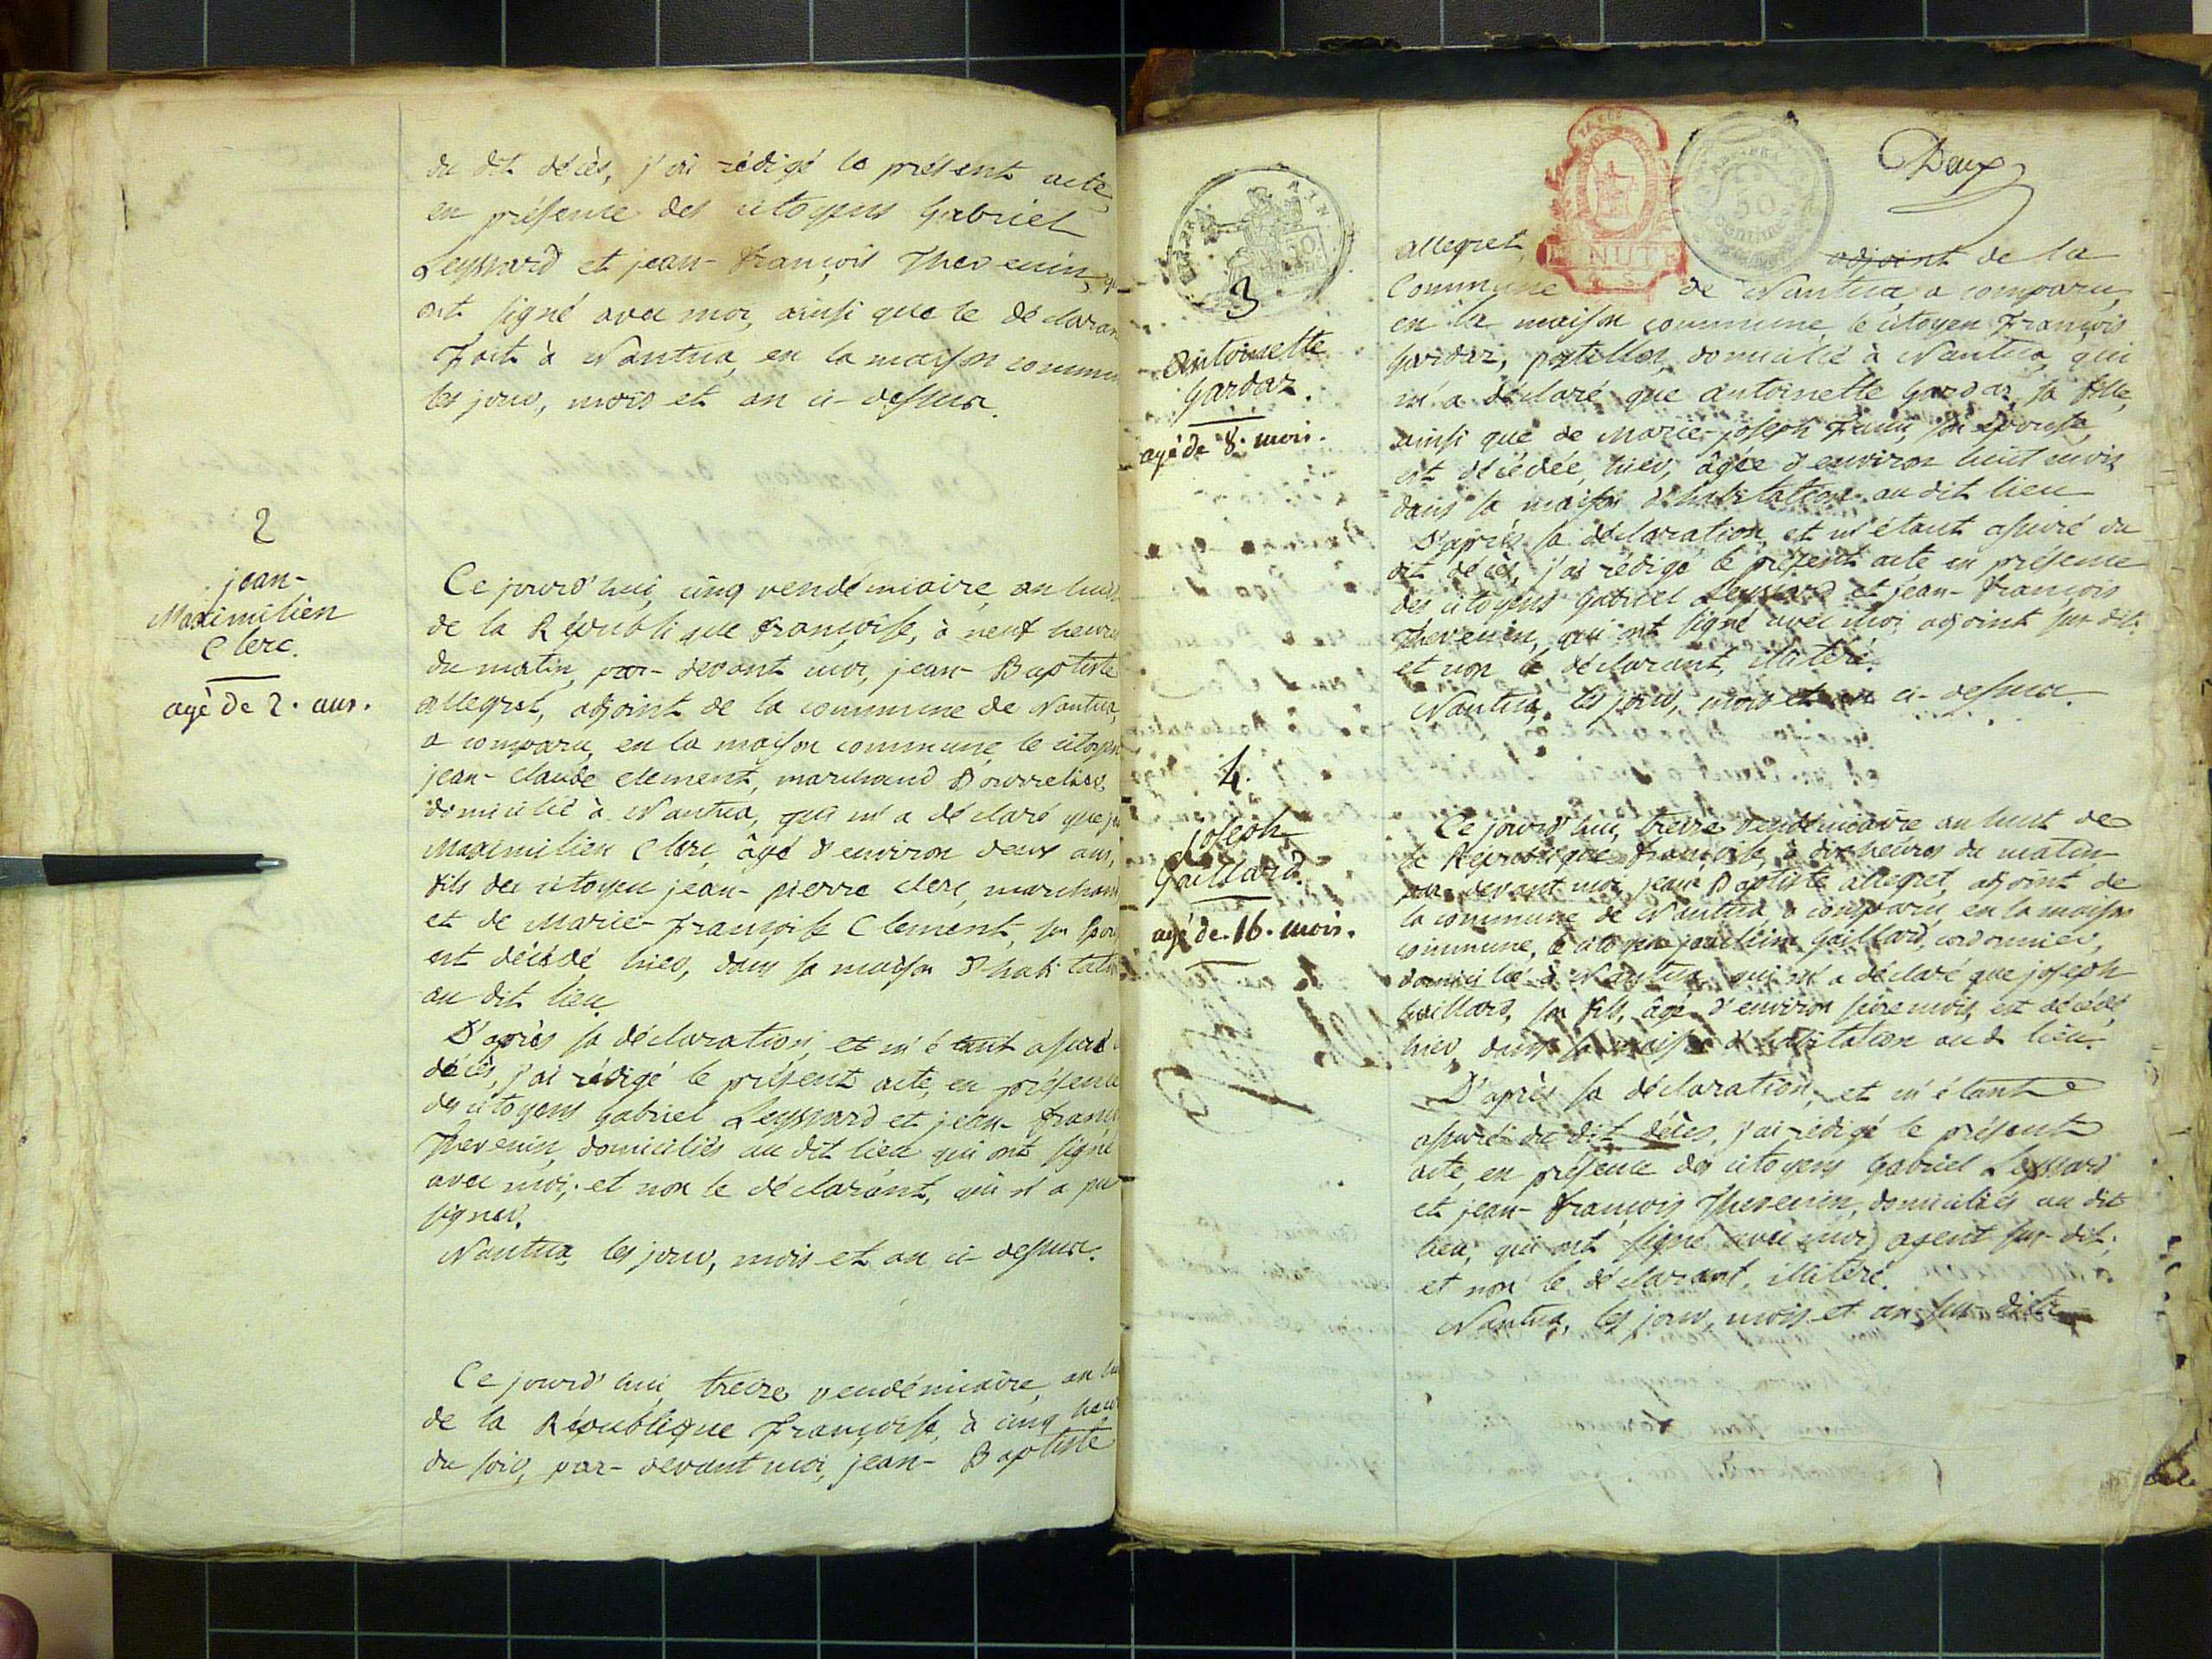 du dit décès, j'ai rédigé le présent acte
en présence des citoyens Gabriel
Leyssard et jean-François Thevenin, q
ont signé avec moi, ainsi que le déclaran
Fait à Nantua, en la maison commun
les jour, mois et an ci-dessus.
2
jean-
Maximilien
Clerc.
agé de 2. ans.
Ce jourd'hui, cinq vendémiaire, an huit
de la République françoise, à neuf heures
du matin, par-devant moi, jean-Baptiste
allegret, adjoint de la commune de Nantua,
a comparu, en la maison commune, le citoyen
jean-claude clement, marchand Bourrelier
domicilié à Nantua, qui m'a déclaré que j
Maximilien Clerc, âgé d'environ deux ans,
fils des citoyen jean-pierre clerc, marchand
et de Marie-Françoise Clement, son Epou
est décédé hier, dans sa maison d'habitation
au dit lieu.
D'après sa déclaration, et m'étant assuré
décès, j'ai rédigé le présent acte, en présence
des citoyens Gabriel Leyssard et jean-franç
Thevenin, domiciliés au dit lieu qui ont signé
avec moi; et non le déclarant, qui n'a pu
signer.
Nantua, les jour, mois et an ci-dessus.
Ce jourd'hui, treize vendémiaire, an
de la République Françoise, à cinq heur
du soir, par-devant moi, jean-Baptiste
Deux
MINUTE
50
3
Antoinette
Gardaz.
agé de 8. mois.
allegret, adjoint de la
Commune de Nantua, a comparu,
en la maison commune, le citoyen François
Gardaz, postillon, domicilié à Nantua, qui
m'a déclaré que antoinette Gardaz, sa fille,
ainsi que de Marie-joseph son épouse,
est décédée, hier, âgée d'environ huit mois
dans sa maison d'habitation au dit lieu
D'après sa déclaration, et m'étant assuré du
dit décès, j'ai rédigé le présent acte en présence
des citoyens Gabriel Leyssard et jean-François
Thevenin, qui ont signé avec moi adjoint sus-dit:
et non le déclarant, illitéré.
Nantua, les jour, mois et an ci-dessus.
4.
joseph
Gaillard.
agé de 16. mois.
Ce jourd'hui, treize vendémiaire an huit de
la République françoise, à dix heures du matin
par-devant moi, jean Baptiste allegret, adjoint de
la commune de Nantua, a comparu, en la maison
commune, le citoyen Gaillard, cordonnier,
domicilié à Nantua, qui m'a déclaré que joseph
Gaillard, son fils, âgé d'environ seize mois, est décédé
hier, dans sa maison d'habitation aud. lieu.
D'après sa déclaration, et m'étant
assuré du dit décès, j'ai rédigé le présent
acte, en présence des citoyens Gabriel Leyssard
et jean-François Thevenin, domiciliés au dit
lieu, qui ont signé avec moi, agent sus-dit;
et non le déclarant, illitéré.
Nantua, les jour, mois et an sus-dits.